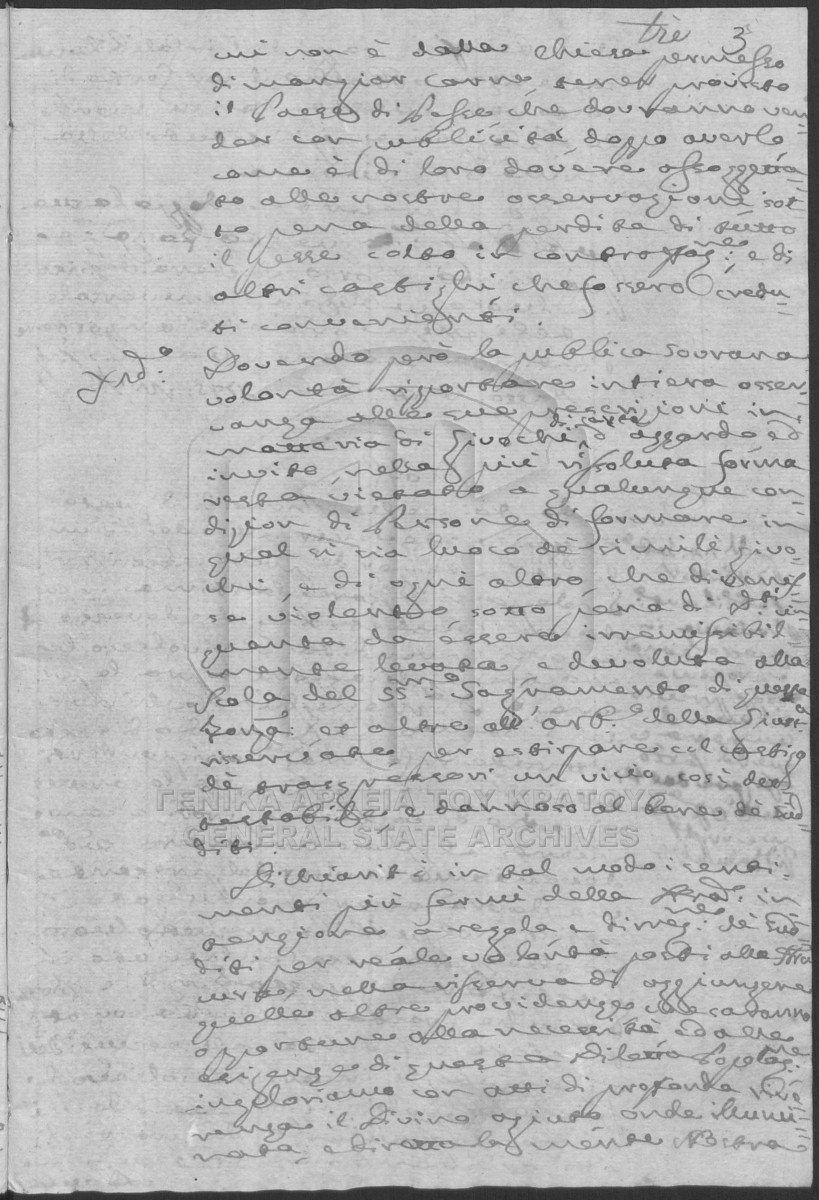 tre 3
cui non è dalla Chiesa permesso
di mangiar carne, tener provisto
il Paese di Pesse che dovranno ven-
der con publicità doppo averlo
come è di loro dovere assoggetta-
to alle nostre osservazioni sot-
to pena della perdita di tutto
il Pesse colto in controffaz:ne e di
altri castighi che fossero credu-
ti convenienti.
Dovendo però la publica Sovrana
volontà riportare intiera osser-
vanza alle sue prescrizioni in
matteria di Giuochi di carte d'azzardo ed
invito, nella più rissoluta forma
resta vietato a qualunque con-
dizion di Persone di formare in
qual si sia luoco de simili giuo-
chi, e di ogni altro che divenis-
se violento sotto pena di D:ti cin-
quanta da essere irremissibil-
mente levata, e devoluta alla
Scola del SS:mo Sagramento di questa
Fortza: et altre all' arb:o della Giust:a
risservate per estirpare col castigo
dè trasgressori un vicio così de-
testabile e dannoso al bene dè sud-
diti.
Dichiariti in tal modo i senti-
menti più fermi della
tenzione a regola e direz:ne dè sud-
diti per reale volontà posti alla
nella risserva di aggiungere
quelle altre providenze che saranno
opportune alla necessità ed alle
esigenze di questa Diletta Popolaz:ne
imploriamo con atti di profonda rive-
renza il Divino agiuto onde illumi-
nata, e diretta la mente Nostra
ΓΕΝΙΚΑ ΑΡΧΕΙΑ ΤΟΥ ΚΡΑΤΟΥΣ
GENERAL STATE ARCHIVES